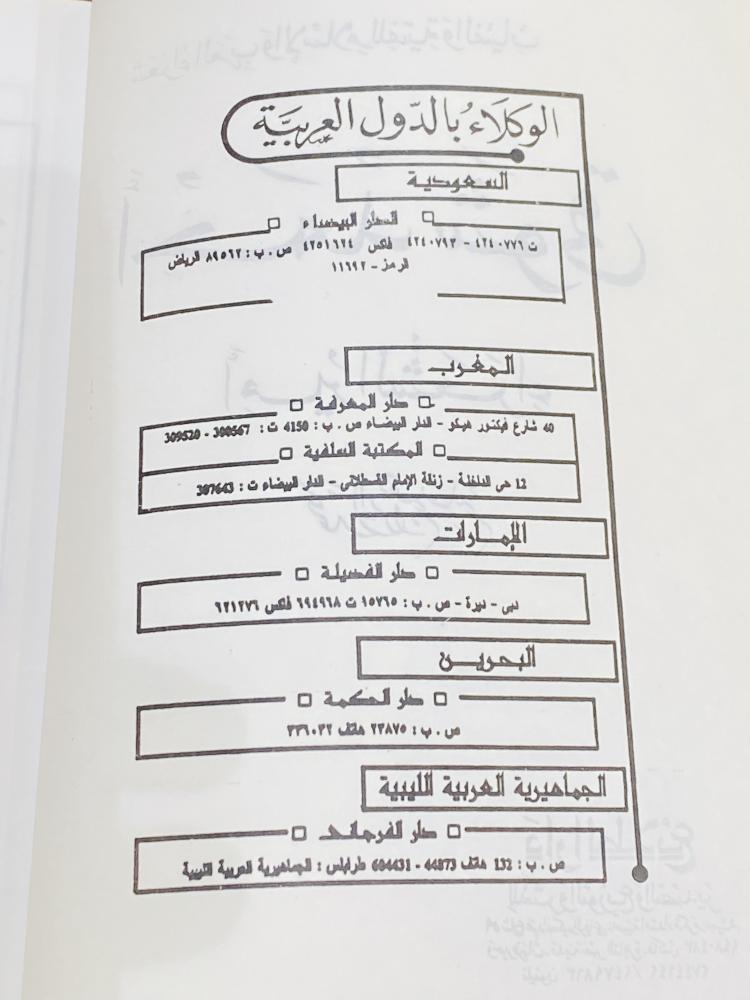 الوكلاء بالدول العربية
السعودية
الدار البيضاء
ت ٤٢٤٠٧٧٦ - ٤٢٤٠٧٩٣ فاكس ٤٢٥١٦٢٤ ص . ب : ٨٩٥٦٢ الرياض
الرمز - ١١٦٩٢
المغرب
دار المعرفة
40 شارع فيكتور هيكو - الدار البيضاء ص . ب : 4150 ت : 300567 - 309520
المكتبة السلفية
12 حى الداخلة - زنقة الإمام القسطلانى - الدار البيضاء ت : 307643
الإمارات
دار الفضيلة
دبى - ديرة - ص . ب : ١٥٧٦٥ ت ٦٩٤٩٦٨ فاكس ٦٢١٢٧٦
البحرين
دار الحكمة
ص . ب : ٢٣٨٧٥ هاتف ٣٣٦٠٣٢
الجماهيرية العربية الليبية
دار الفرجانى
ص . ب : 132 هاتف 44873 - 604431 طرابلس : الجماهيرية العربية الليبية